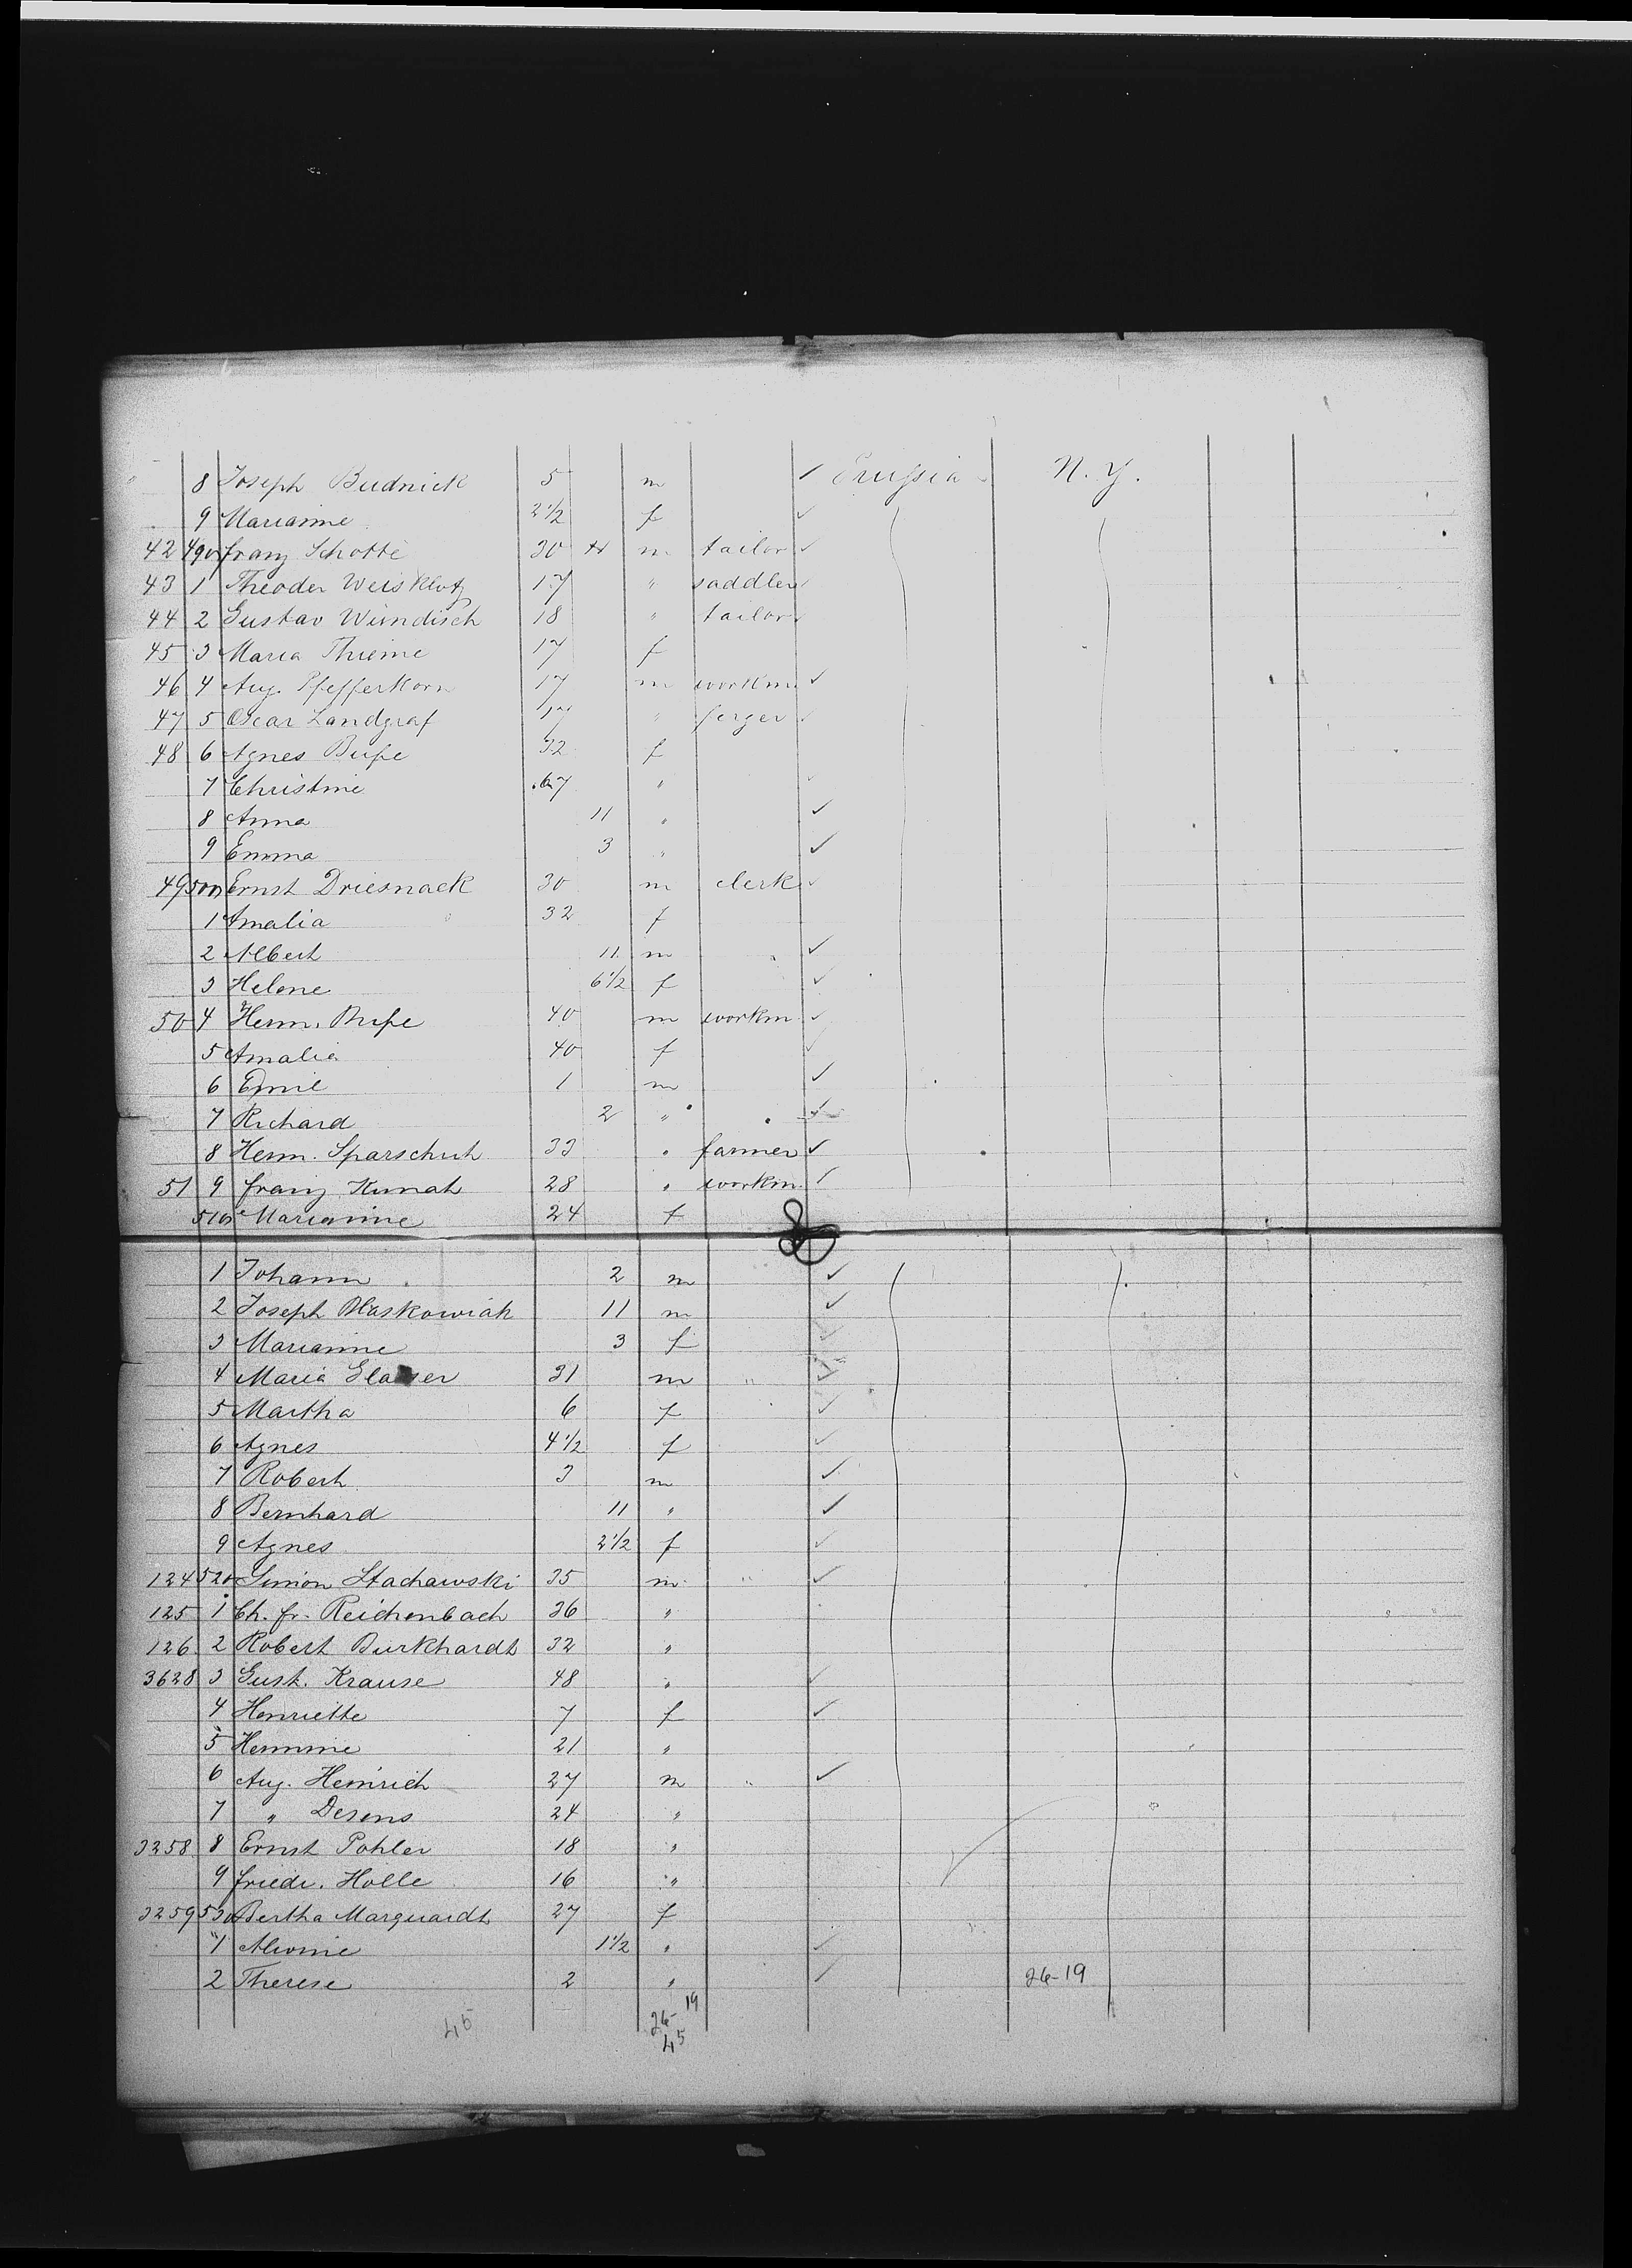 8 Joseph Budnick 5 m ✓ Prussia N.Y.
9 Marianne 2 1/2 f ✓
42 490 Franz Schotte 30 m tailor ✓
43 1 Theoder Weisklotz 17 " saddler ✓
44 2 Gustav Wündisch 18 " tailor ✓
45 3 Maria Thieme 17 f
46 4 Aug. Pfefferkorn 17 m workm. ✓
47 5 Oscar Landgraf 17 " ✓
48 6 Agnes Buße 32 f
7 Christine 67 " ✓
8 Anna 11 " ✓
9 Emma 3 " ✓
49 500 Ernst Driesnack 30 m clerk ✓
1 Amalia 32 f
2 Albert 11 m ✓
3 Helene 6 1/2 f ✓
50 4 Herm. Buße 40 m workm ✓
5 Amalia 40 f ✓
6 Emil 1 m ✓
7 Richard 2 " ✓
8 Herm. Sparschuh 33 " farmer ✓
51 9 Franz Kunah 28 " workm. ✓
510 Marianne 24 f
1 Johann 2 m ✓
2 Joseph Blaskowiak 11 m ✓
3 Marianne 3 f ✓
4 Maria 31 m " ✓
5 Martha 6 f ✓
6 Agnes 4 1/2 f ✓
7 Robert 3 m ✓
8 Bernhard 11 " ✓
9 Agnes 2 1/2 f ✓
124 520 Simon Stachawski 35 m " ✓
125 1 Ch. Fr. Reichenbach 36 "
126 2 Robert Burkhardt 32 "
3628 3 Gust. Krause 48 " ✓
4 Henriette 7 f ✓
5 Hermine 21 "
6 Aug. Heinrich 27 m " ✓
7 " Desens 24 "
3258 8 Ernst Pohler 18 "
9 Friedr. Holle 16 "
3259 530 Bertha Marquardt 27 f
1 Alwine 1 1/2 " ✓
2 Therese 2 " ✓ 26-19
45 26-19
45